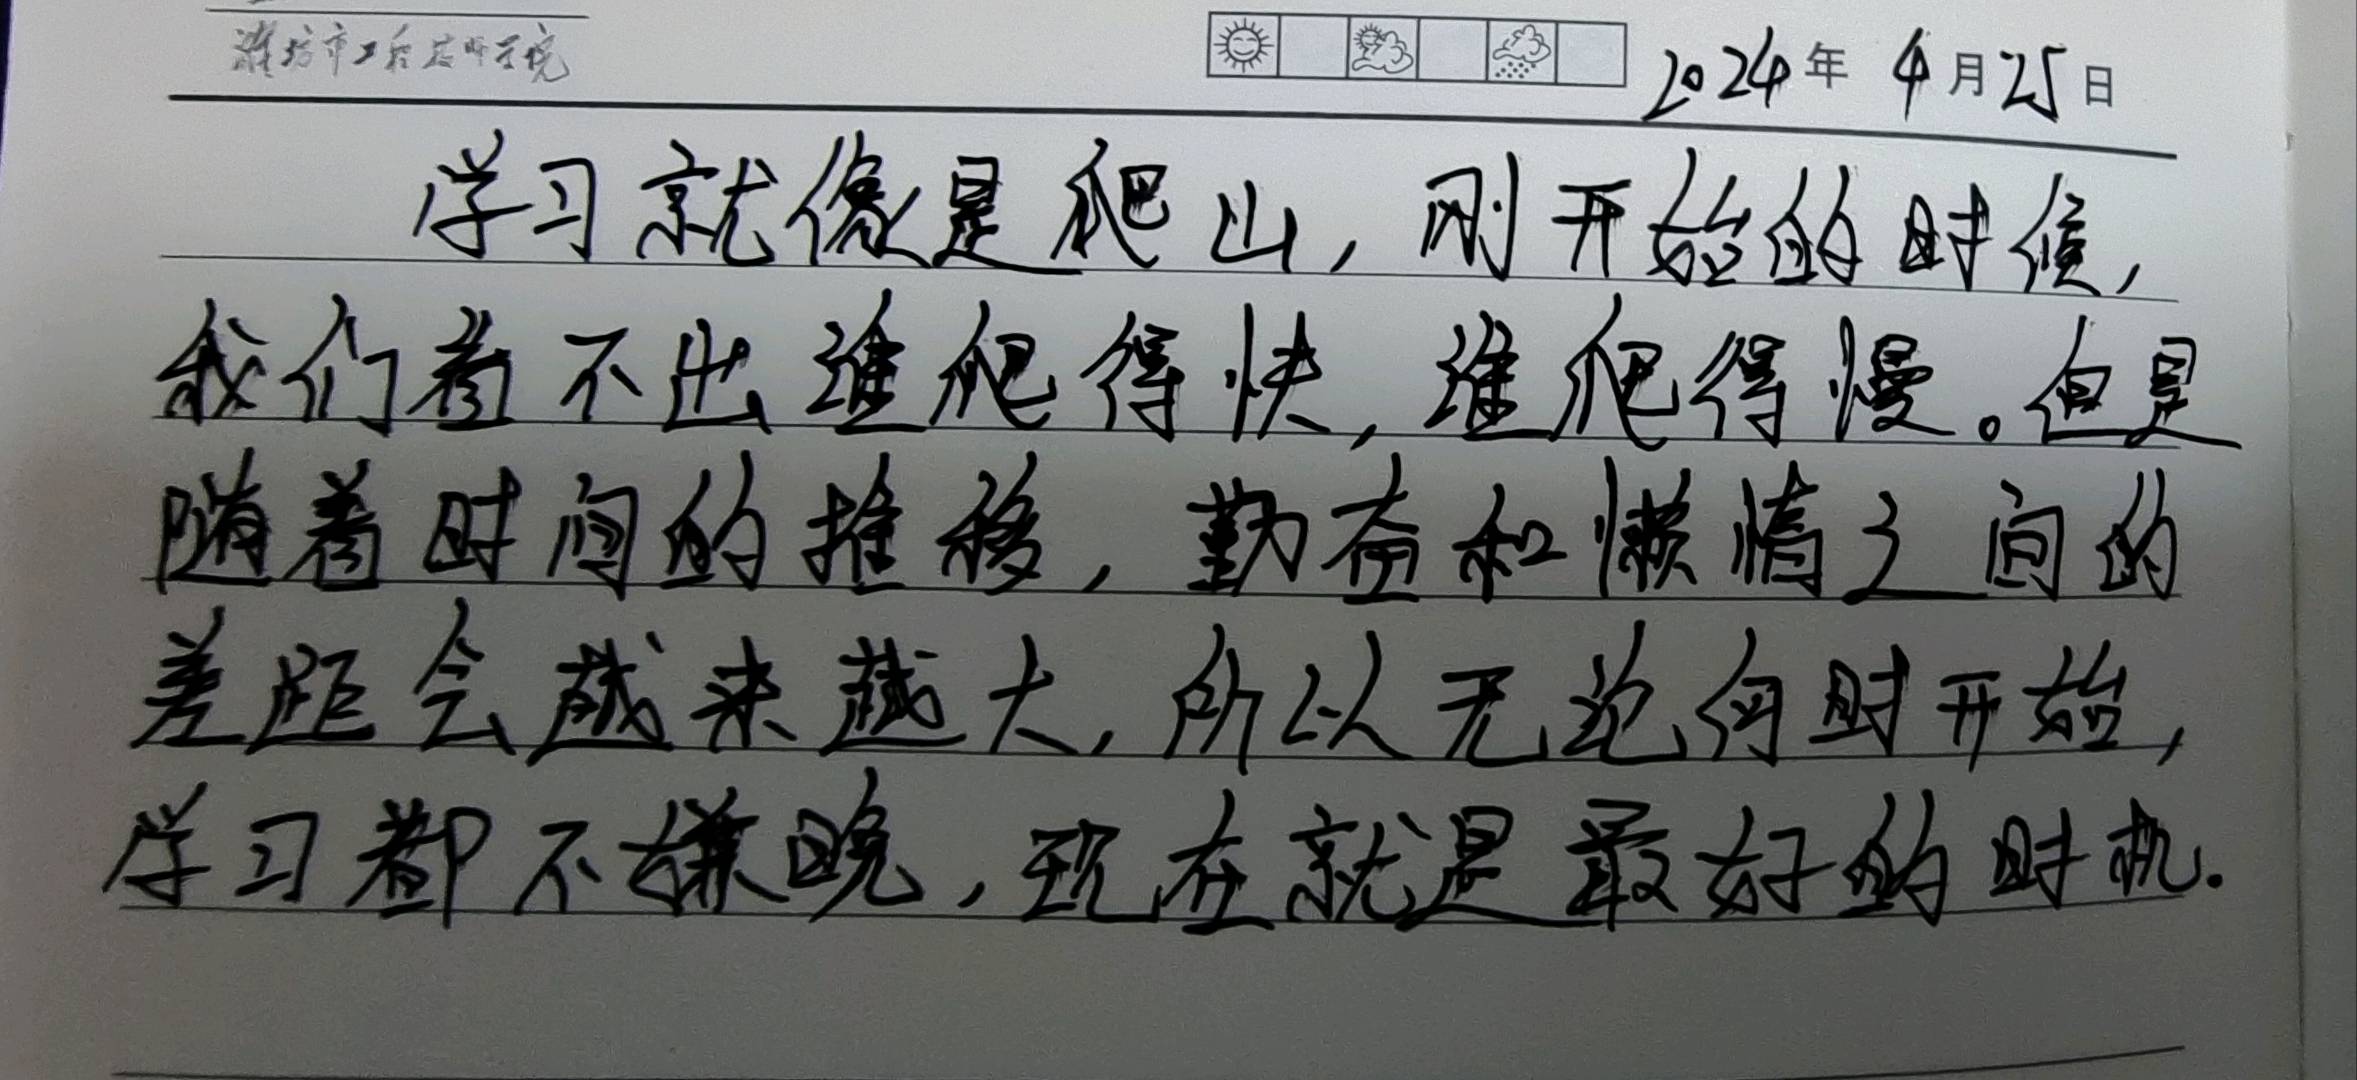 潍坊市工程技师学院
2024年 4月25日
学习就像是爬山，刚开始的时候，
我们看不出谁爬得快，谁爬得慢。但是
随着时间的推移，勤奋和懒惰之间的
差距会越来越大，所以无论何时开始，
学习都不嫌晚，现在就是最好的时机.